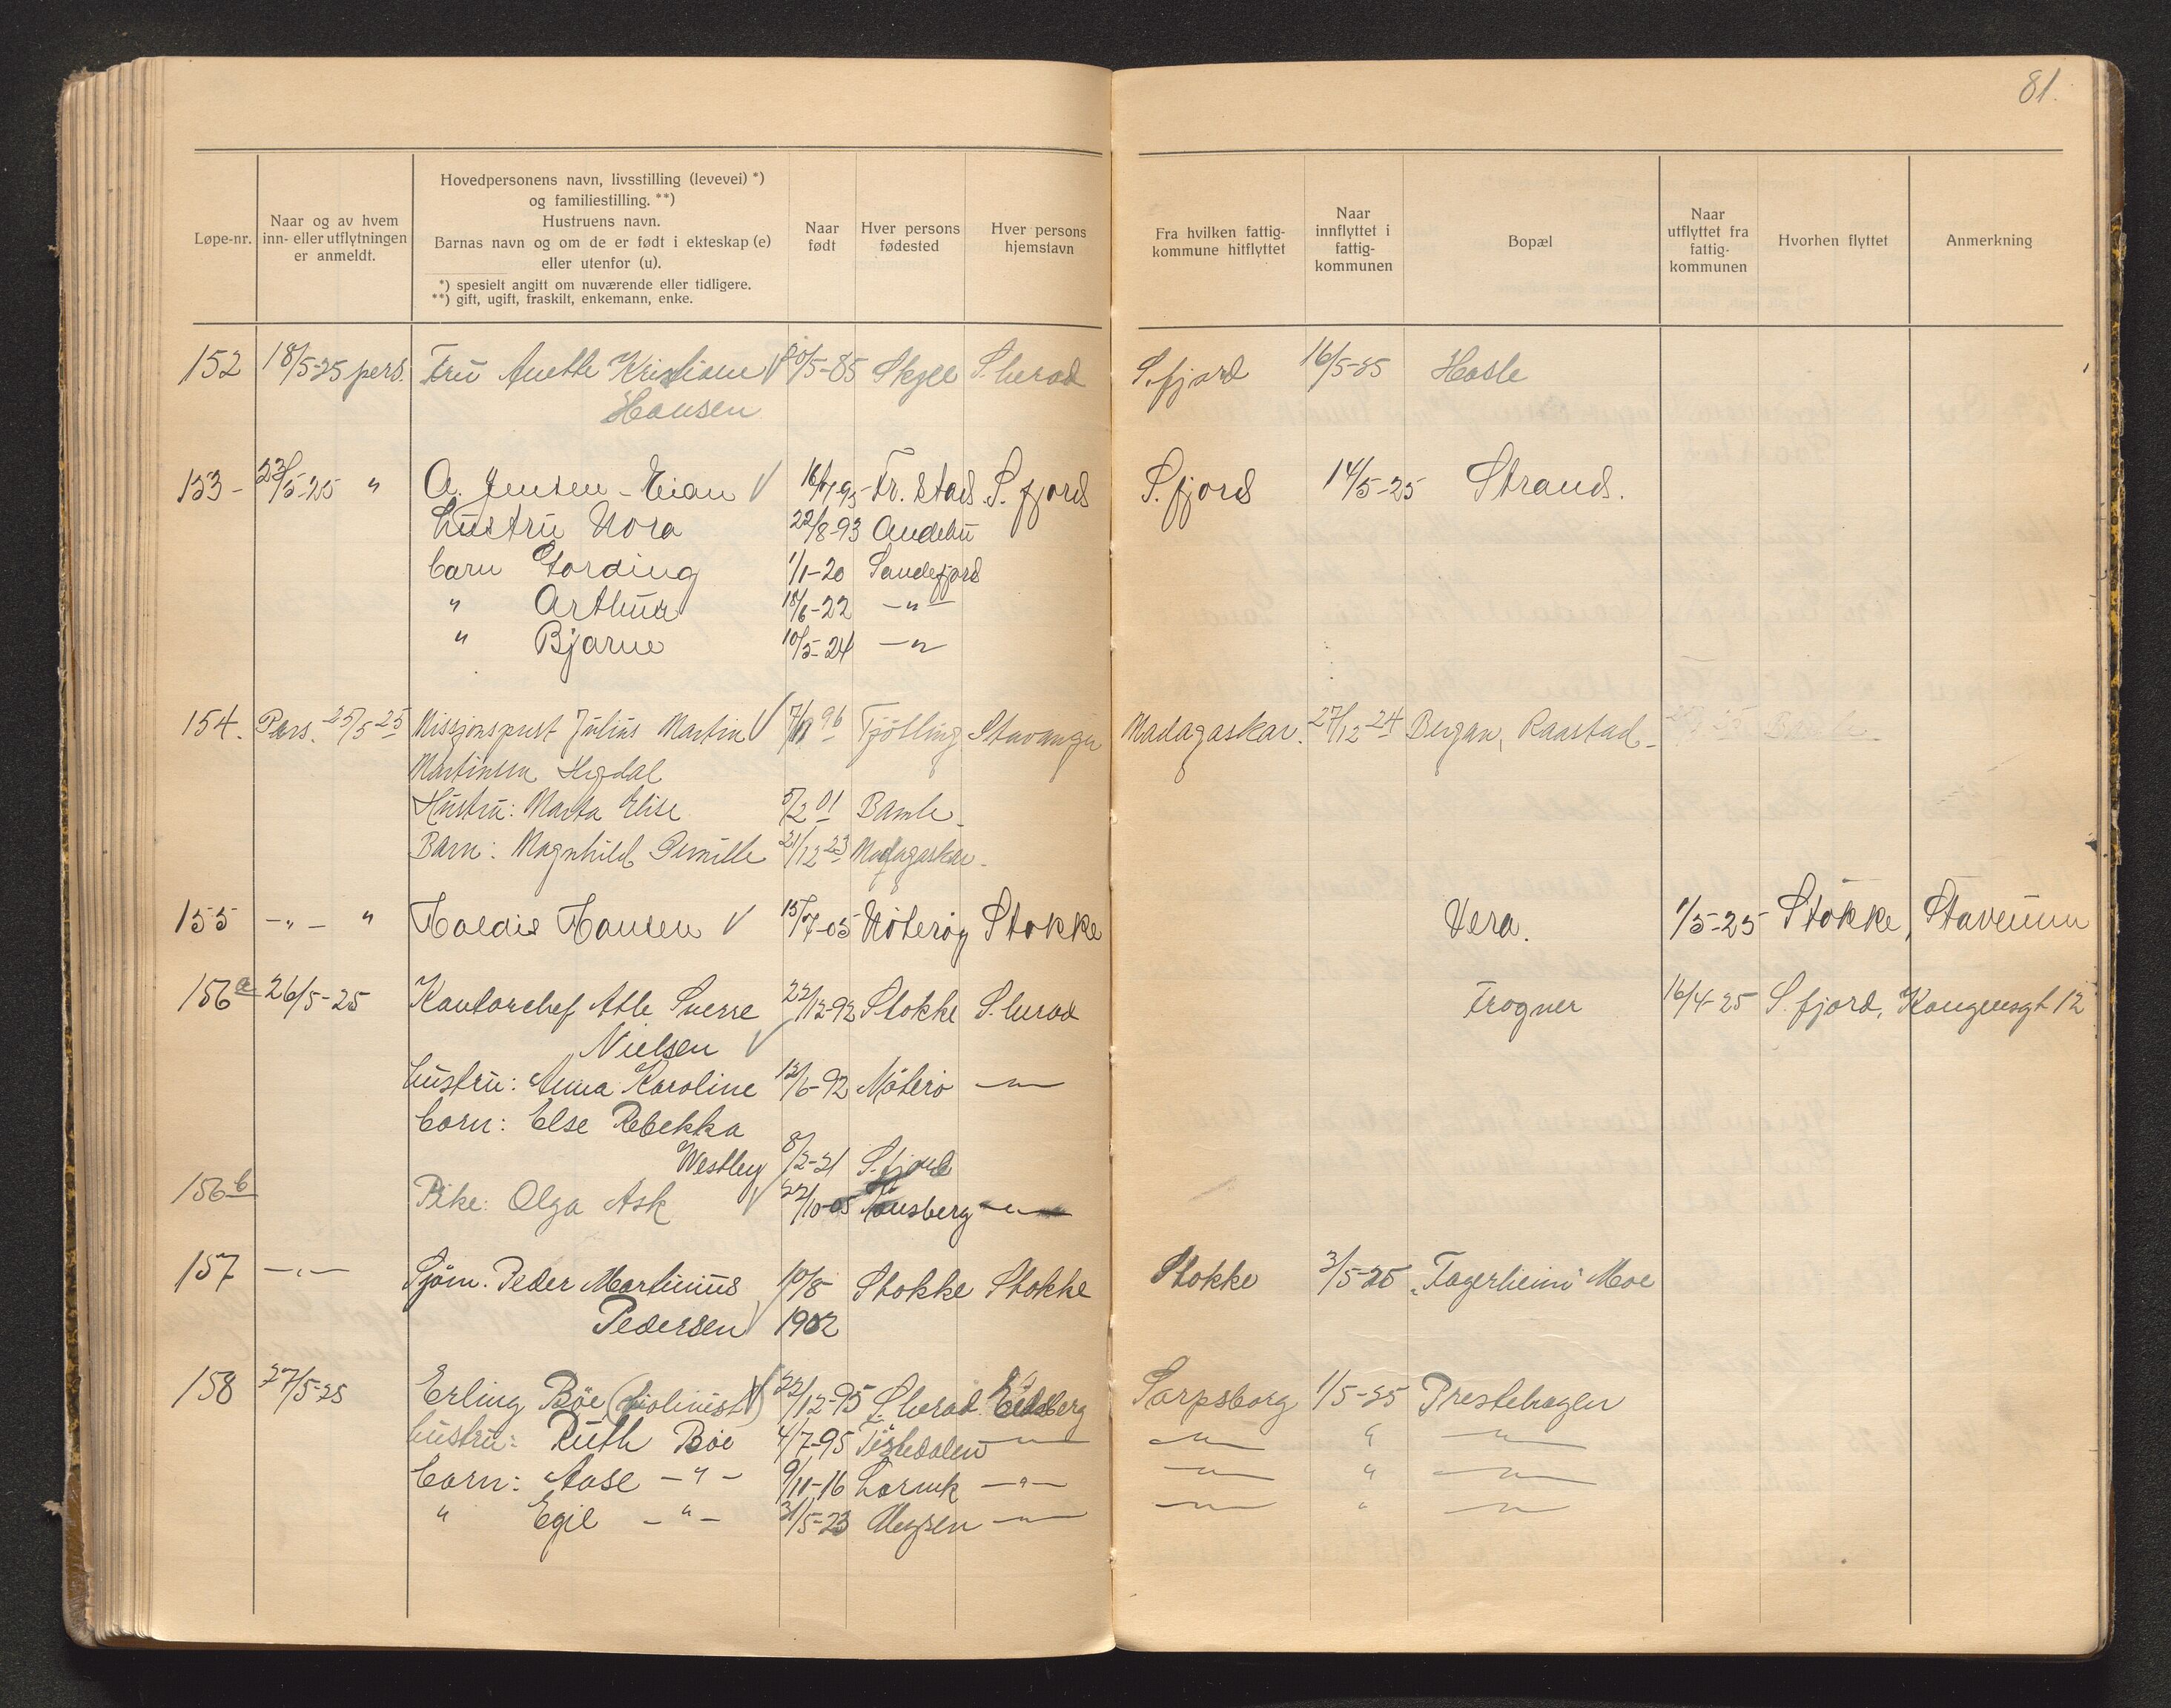 81.
Løpe-nr.
Naar og av hvem
inn- eller utflytningen
er anmeldt.
Hovedpersonens navn, livsstilling (levevei) *)
og familiestilling. **)
Hustruens navn.
Barnas navn og om de er født i ekteskap (e)
eller utenfor (u).
*) spesielt angitt om nuværende eller tidligere.
**) gift, ugift, fraskilt, enkemann, enke.
Naar
født
Hver persons
fødested
Hver persons
hjemstavn
Fra hvilken fattig-
kommune hitflyttet
Naar
innflyttet i
fattig-
kommunen
Bopæl
Naar
utflyttet fra
fattig-
kommunen
Hvorhen flyttet
Anmerkning
152 18/5-25 pers. Fru Anette Kristiane √ 20/5-85 Skjee S.herad S.fjord 16/5-25 Hasle
Hansen
153- 23/5-25 " A. Jensen-Eian √ 16/7-95 Fr.stad S.fjord S.fjord 14/5-25 Strand.
hustru Nora 22/8-93 Andebu
barn Gording 1/1-20 Sandefjord
" Arthur 18/6-22 -"-
" Bjarne 10/5-24 -"
154. Pers. 25/5 25 Missjonsprest Julius Martin √ 96 Tjölling Stavanger Madagaskar. 27/12 24 Bergan, Raastad-
Martinsen Hegdal
Hustru: Marta Elise 5/2 01 Bamle-
Barn: Magnhild Pernille 21/12 23 Madagaskar-
155 -"- " Haldis Hansen √ 15/7-05 Nöteröy Stokke Vera. 1/5-25 Stokke, Staverum
156a 26/5-25 Kontorchef Atle Sverre 22/12-92 Stokke S.herad Frogner 16/4-25 S.fjord, Kongensgt 12
Nielsen √
hustru: Anna Karoline 12/6-92 Nöterö -"-
barn: Else Rebekka
Westley 8/2-21 S.fjord
156b Pike: Olga Ask √ 22/10-05 Tönsberg -"-
157 -"- Sjöm. Peder Martinius 10/8 Stokke Stokke Stokke 3/5-25 "Fagerheim" Moe
Pedersen √ 1902
158 27/5-25 Erling Böe (violinist) √ 22/12-95 S.herad Eidsberg Sarpsborg 1/5-25 Prestehagen
hustru: Ruth Böe 4/7-95 Tistedalen -"- -"- " -"-
barn: Aase -"- 9/11-16 Larvik -"- -"- " -"-
" Egil -"- 31/5-23 Mysen -"- -"- " -"-